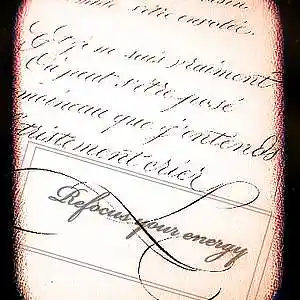 s'être envolée.
Et je ne sais vraiment
Où peut s'être posé
moineau que j'entends
tristement crier
Refocus your energy